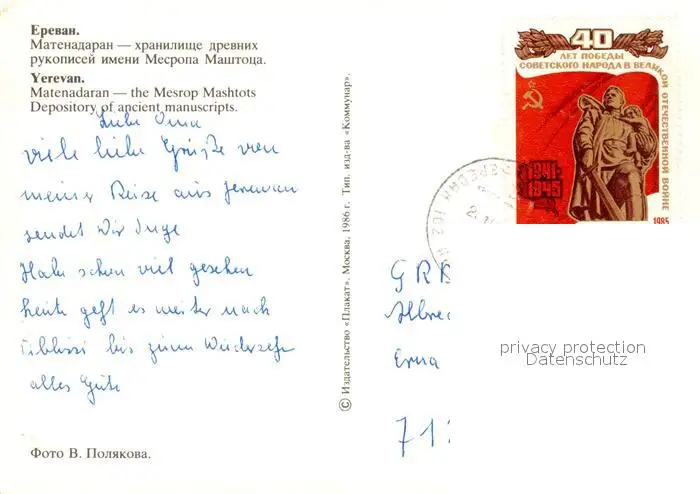 Ереван.
Матенадаран — хранилище древних
рукописей имени Месропа Маштоца.
Yerevan.
Matenadaran — the Mesrop Mashtots
Depository of ancient manuscripts.
Liebe Oma
viele liebe Grüße von
meiner Reise aus Jerevan
sendet Dir Inge
Habe schon viel gesehen
heute geht es weiter nach
Tiblissi bis zum Wiedersehn
alles Gute
Фото В. Полякова.
© Издательство «Плакат», Москва, 1986 г. Тип. изд-ва «Коммунар».
40
ЛЕТ ПОБЕДЫ
СОВЕТСКОГО НАРОДА В ВЕЛИКОЙ ОТЕЧЕСТВЕННОЙ ВОЙНЕ
1941
1945
1985
ЕРЕВАН 102
Albrec
Erna
71
privacy protection
Datenschutz